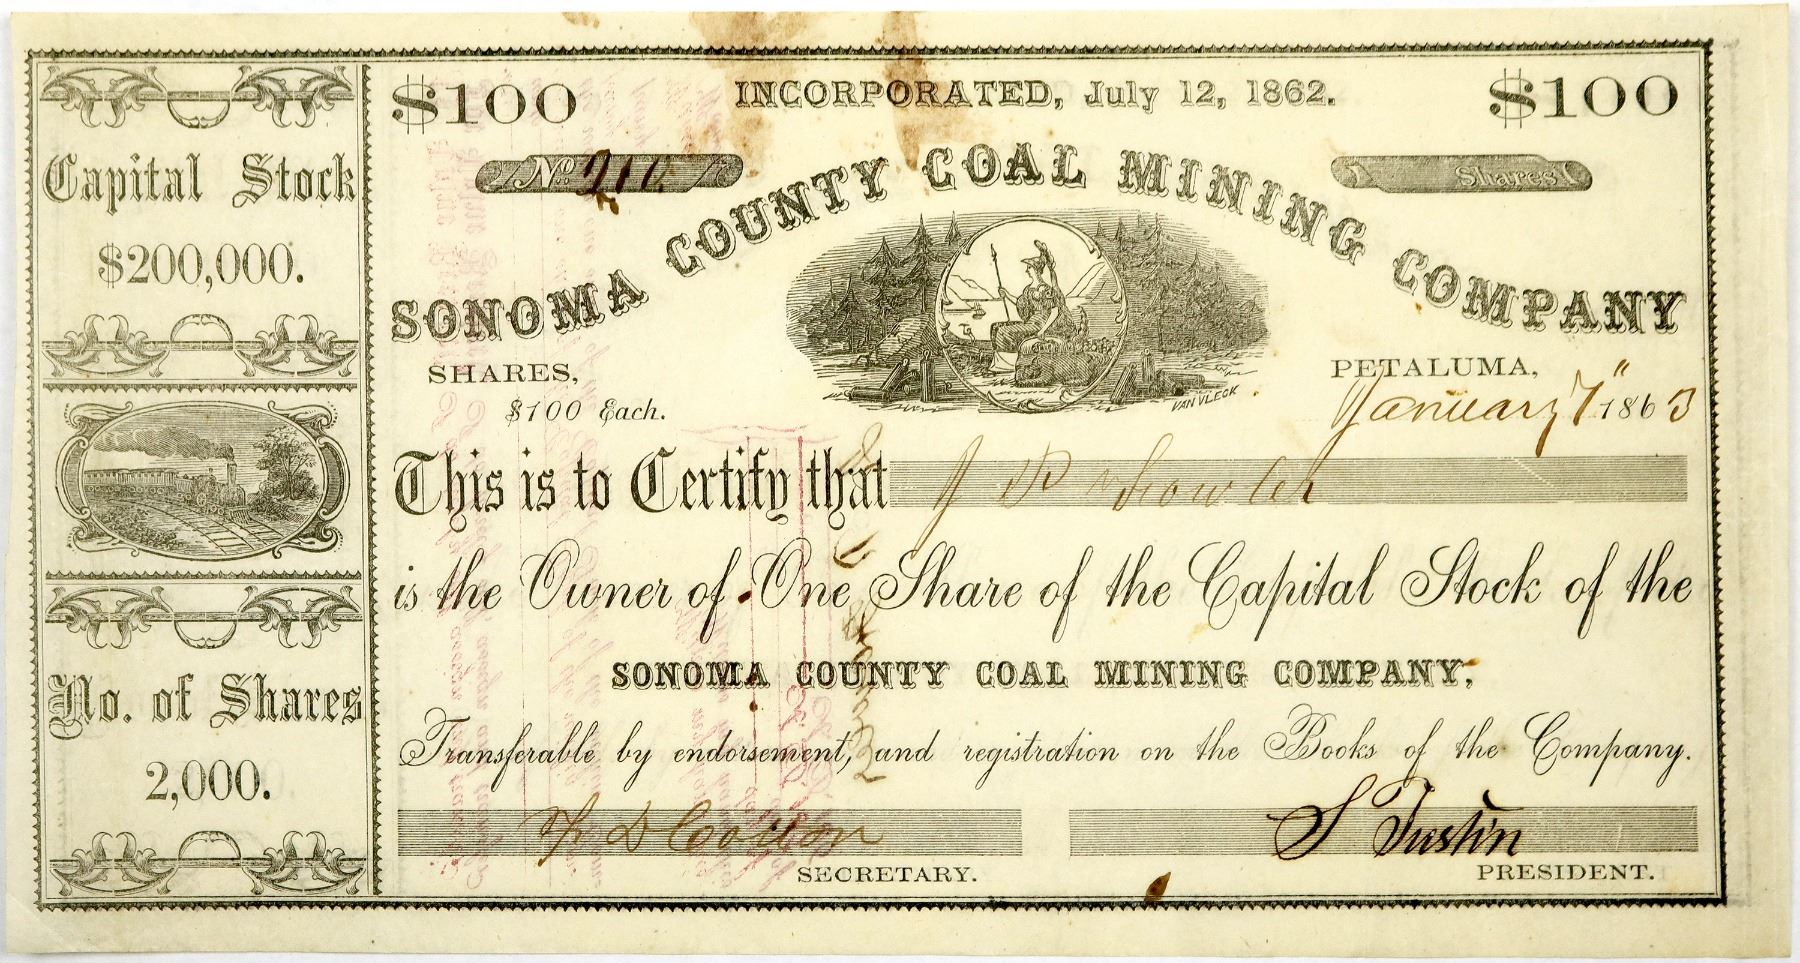 Capital Stock
$200,000.
No. of Shares
2,000.
$100
INCORPORATED, July 12, 1862.
$100
No. 210
Shares
SONOMA COUNTY COAL MINING COMPANY
VAN VLECK
SHARES,
$100 Each.
PETALUMA,
January 7" 1863
This is to Certify that J
is the Owner of One Share of the Capital Stock of the
SONOMA COUNTY COAL MINING COMPANY,
Transferable by endorsement, and registration on the Books of the Company.
D Cotton
SECRETARY.
S Tustin
PRESIDENT.